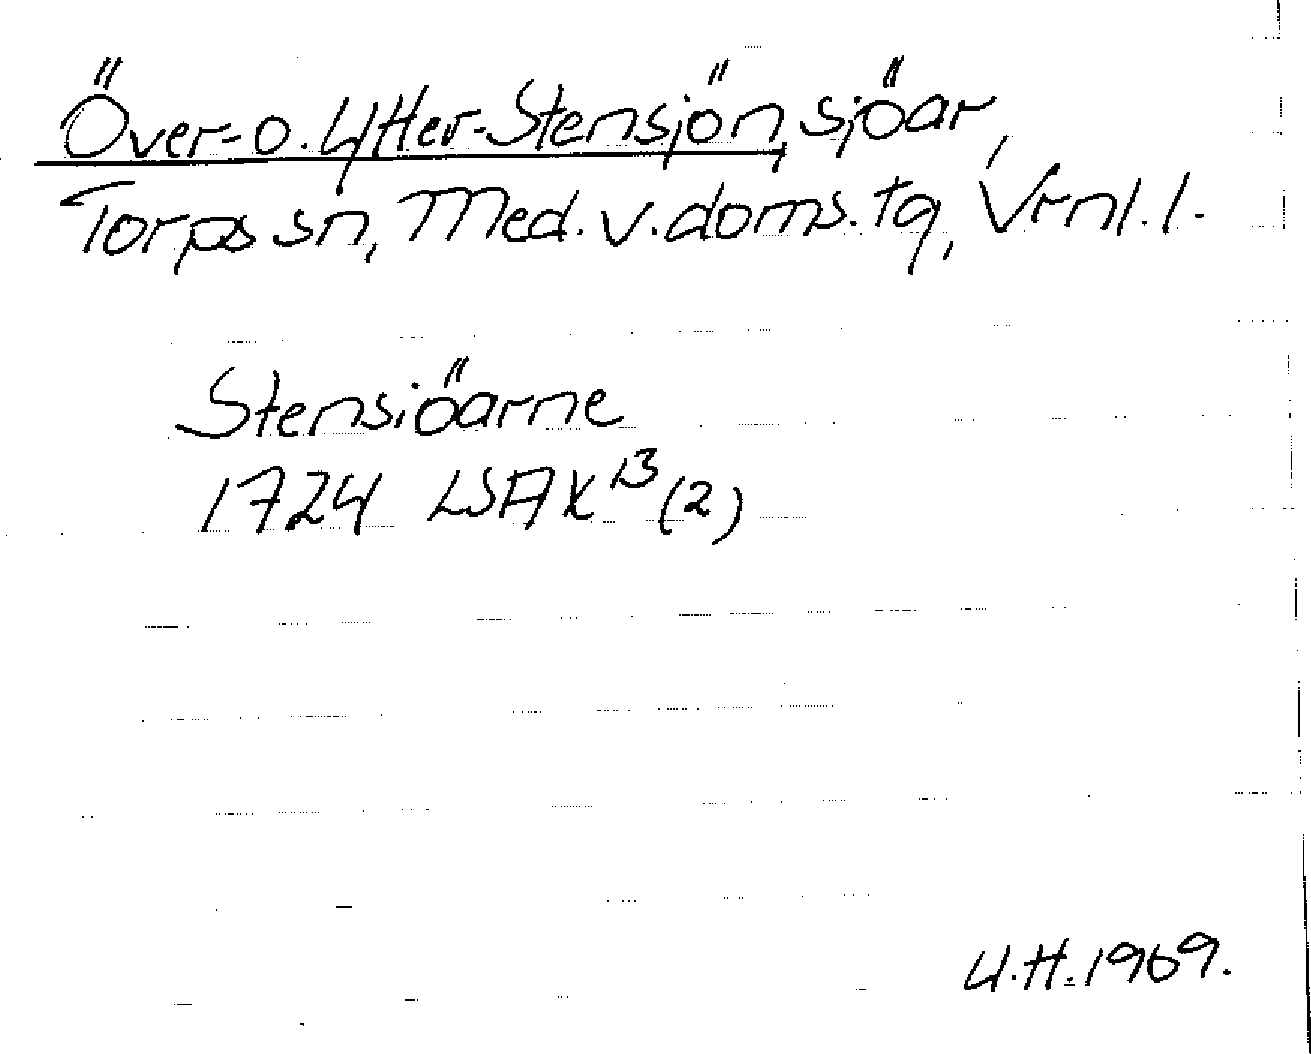 Över- o. Ytter-Stensjön, sjöar,
Torps sn, Med. v. doms. tg, Vrnl. l.
Stensiöarne
1724 LSA K13 (2)
U.H. 1969.